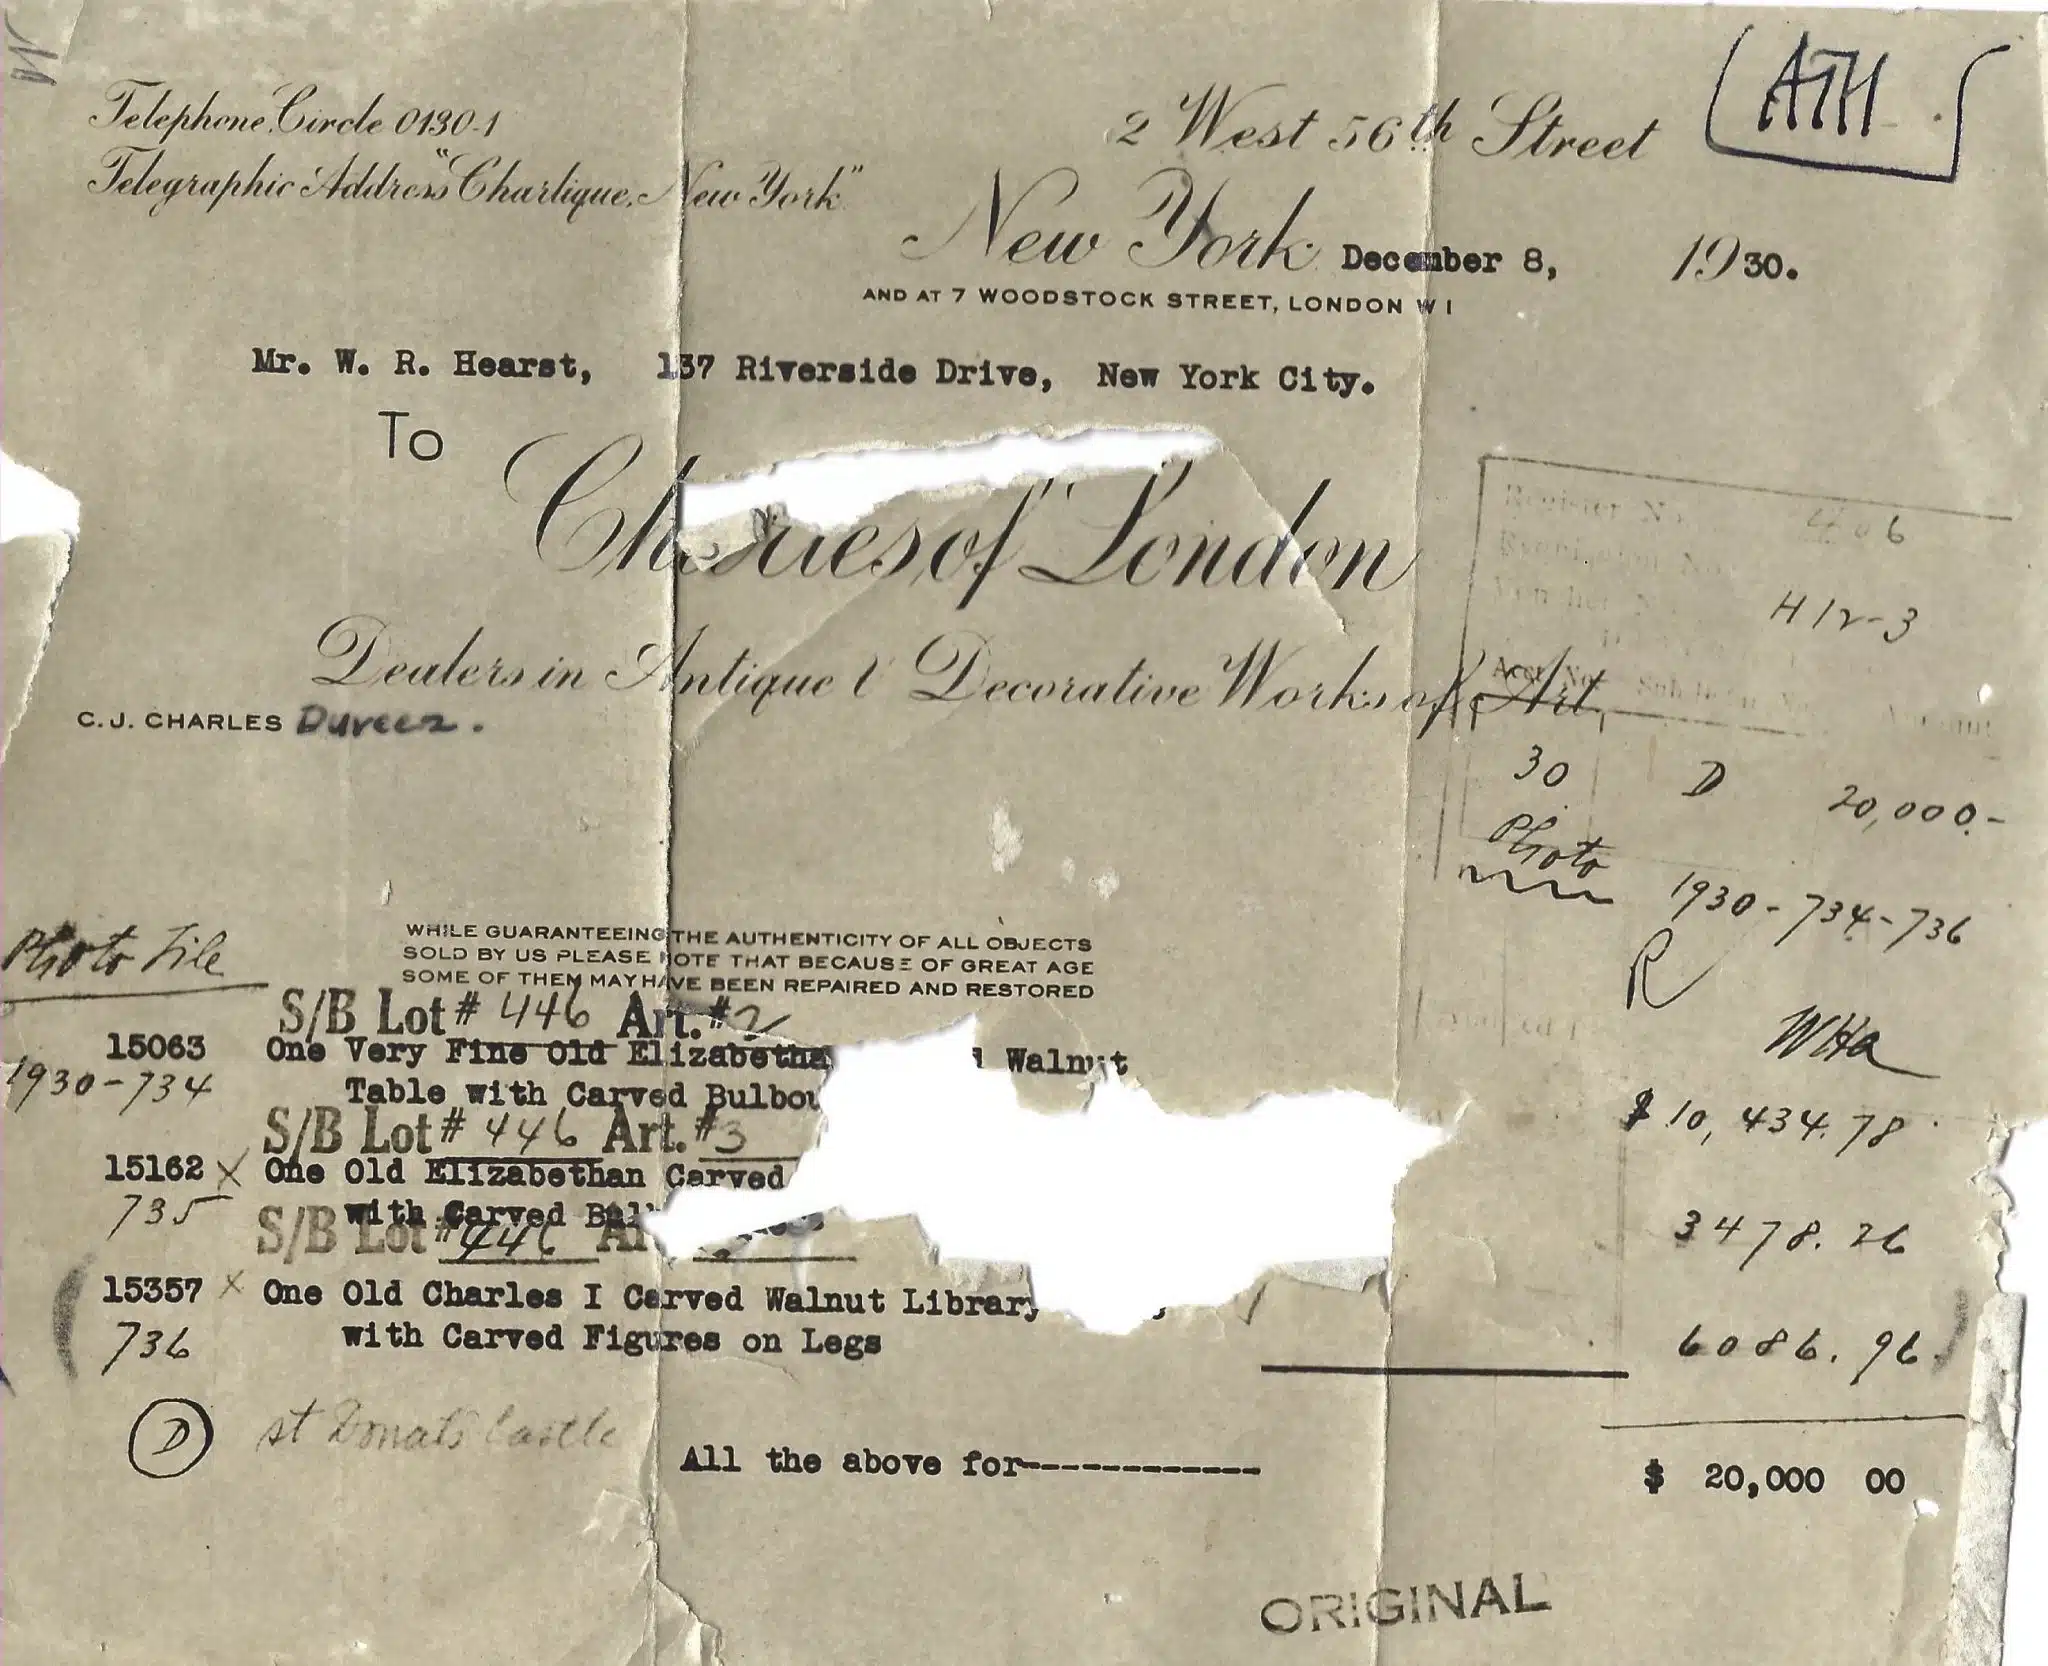 Telephone, Circle 0130-1
Telegraphic Address "Charlique, New York"
2 West 56th Street
ATH
New York December 8, 1930.
AND AT 7 WOODSTOCK STREET, LONDON W 1
Mr. W. R. Hearst, 137 Riverside Drive, New York City.
To
Charles of London
Dealers in Antique & Decorative Works of Art
C. J. CHARLES
Register No. 406
H12-3
30 D 20,000.-
Photo
1930-734-736
R
WHa
WHILE GUARANTEEING THE AUTHENTICITY OF ALL OBJECTS
SOLD BY US PLEASE NOTE THAT BECAUSE OF GREAT AGE
SOME OF THEM MAY HAVE BEEN REPAIRED AND RESTORED
Photo File
S/B Lot # 446 Art. # 2
15063 One Very Fine Old Walnut
1930-734 Table with Carved $ 10,434.78
S/B Lot # 446 Art. # 3
15162 x One Old Elizabethan Carved
735 with Carved 3478.26
S/B Lot # 446
15357 x One Old Charles I Carved Walnut Library
736 with Carved Figures on Legs 6086.96
D St Donat's Castle
All the above for------------ $ 20,000 00
ORIGINAL